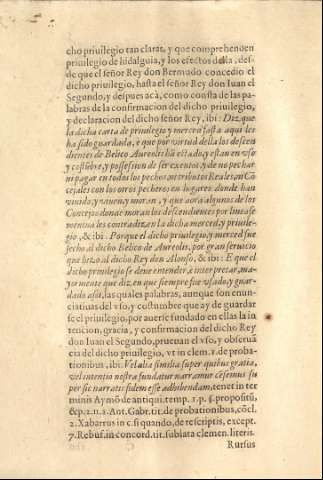 cho priuilegio tan claras, y que comprehenden
priuilegio de hidalguia, y los efectos della, des-
de que el señor Rey don Bermudo concedio el
dicho priuilegio, hasta el señor Rey don Iuan el
Segundo, y despues acà, como consta de las pa-
labras de la confirmacion del dicho priuilegio,
y declaracion del dicho señor Rey, ibi: Diz que
la dicha carta de priuilegio y merced fasta aqui les
ha sido guardada, è que por virtud de la los descē
dientes de Belico Aureolis hā estado, y estan en vso
y costūbre, y possession de ser exentos, y de no pechar
ni pagar en todos los pechos, ni tributos Reales, ni Cō
cejales con los otros pecheros en lugares donde han
viuido, y viuen, y moran, y que aora algunos de los
Concejos donde moran los descendientes por linea fe
menina les contradizen la dicha merced, y priuile-
gio, & ibi: Porque el dicho priuilegio, y merced fue
fecho al dicho Belico de Aureolis, por gran seruicio
que hizo al dicho Rey don Alonso, & ibi: E que el
dicho priuilegio se deue entender, è interpretar, ma-
yormente que dizen que siempre fue vsado, y guar-
dado assi, las quales palabras, aunque son enun-
ciatiuas del vso, y costumbre que ay de guardar
se el priuilegio, por auerse fundado en ellas la in
tencion, gracia, y confirmacion del dicho Rey
don Iuan el Segundo, prueuan el vso, y obseruā
cia del dicho priuilegio, vt in clem. 1. de proba-
tionibus, ibi: Vel alia similia super quibus gratia,
vel intentio nostra fundatur narramur cesimus su
per sic narratis fidem esse adhibendam, tenet in ter
minis Aymō de antiqui. temp. 1. p. §. propositū,
& p. 2. n. 2. Ant. Gabr. tit. de probationibus, cōcl.
2. Xabarrus in c. si quando, de rescriptis, except.
7. Rebuf. in concord. tit. sublata clemen. literis.
Rursus